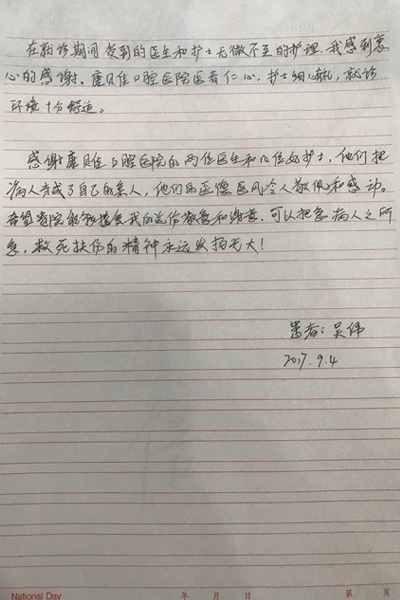 在就诊期间受到的医生和护士无微不至的护理,我感到衷
心的感谢、康贝佳口腔医院医者仁心,护士细心有礼,就诊
环境十分舒适。
感谢康贝佳口腔医院的两位医生和几位女护士,他们把
病人当成了自己的亲人,他们的医德医风令人敬佩和感动。
希望贵院能够接受我的这份敬意和谢意,可以把急病人之所
急,救死扶伤的精神永远发扬光大!
患者:吴伟
2017.9.4
National Day
年 月 日
第 页